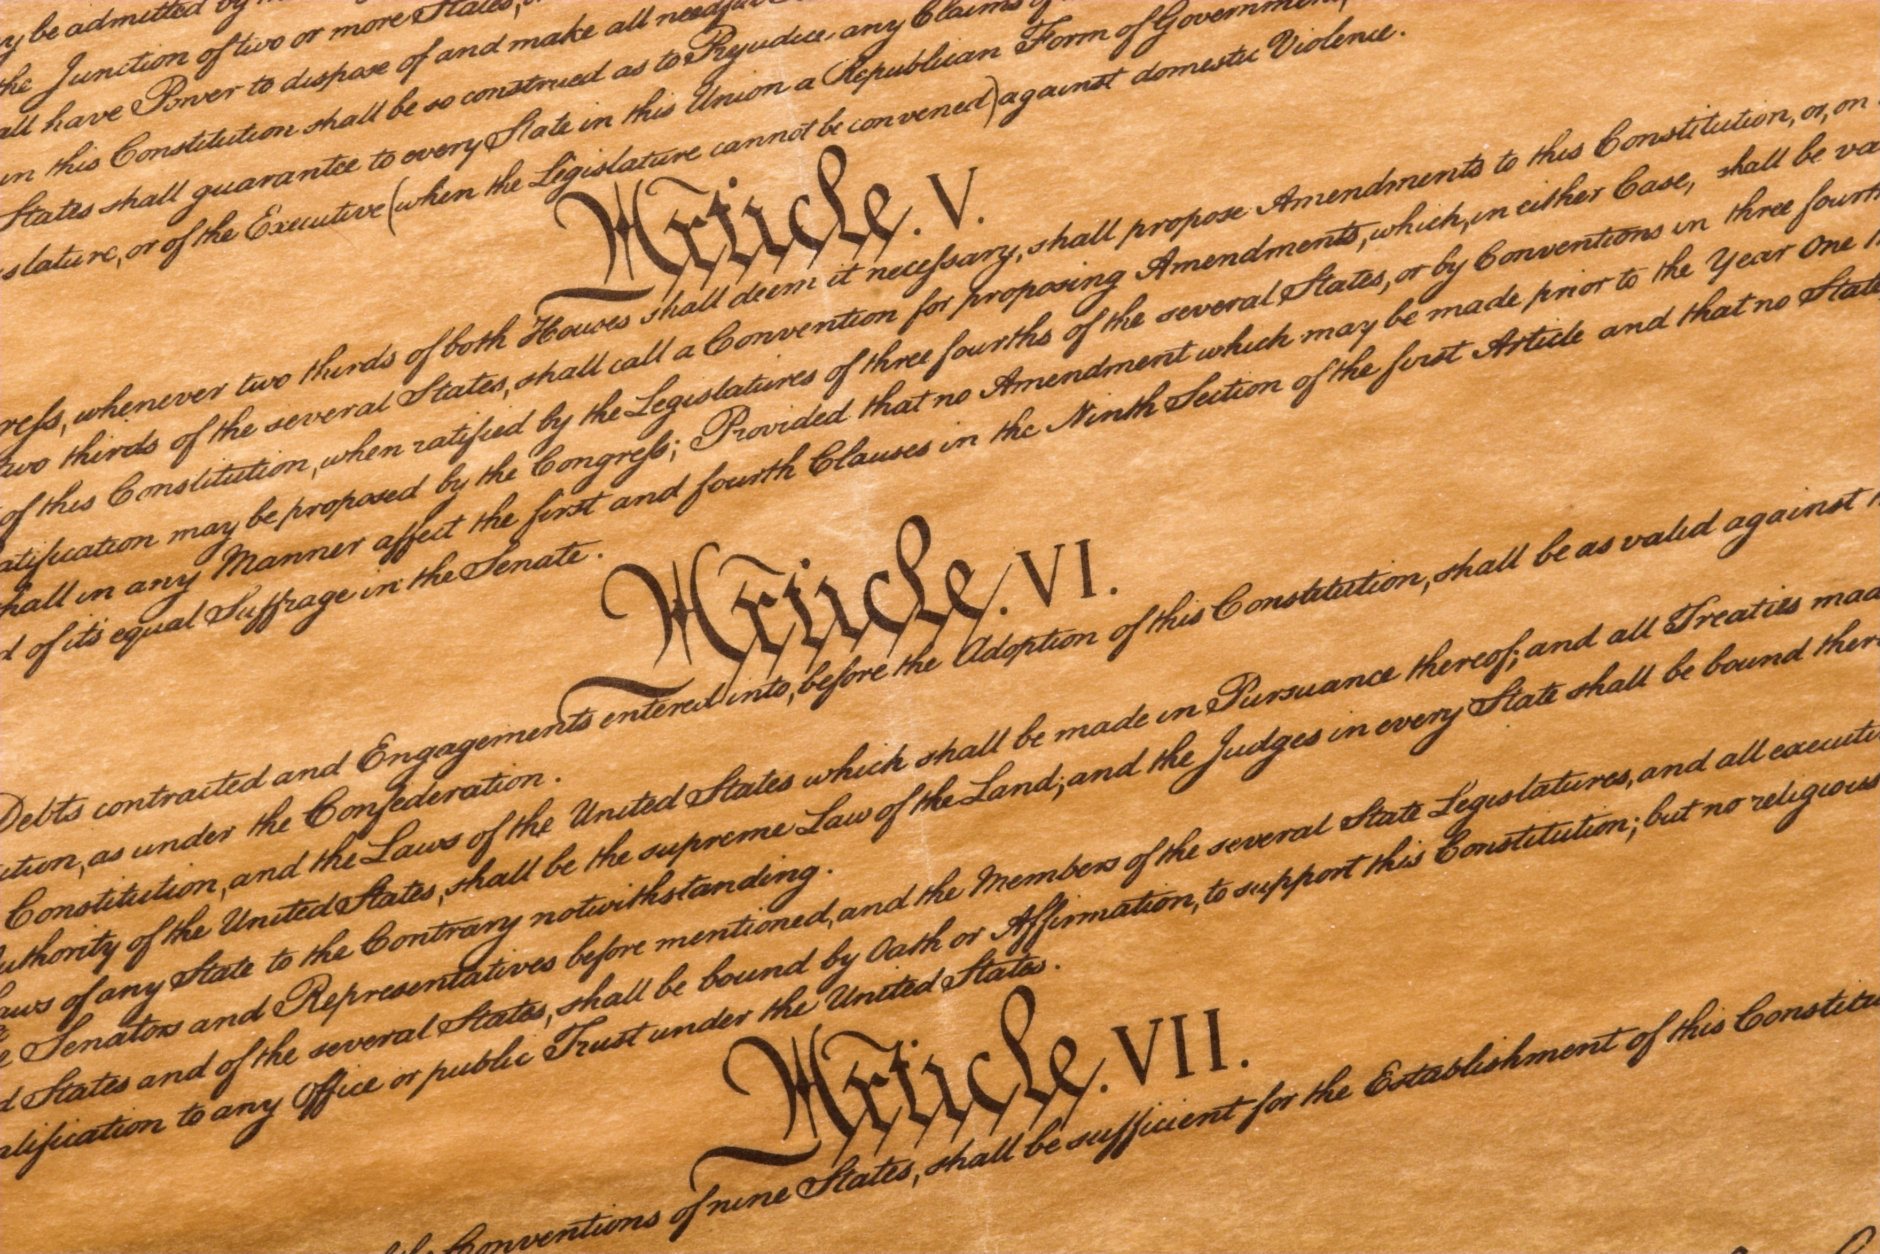 be admitted by
the Junction of two or more States,
have Power to dispose of and make all needful
in this Constitution shall be so construed as to Prejudice any Claims of
States shall guarantee to every State in this Union a Republican Form of Government,
slature, or of the Executive (when the Legislature cannot be convened) against domestic Violence.
Article. V.
ress, whenever two thirds of both Houses shall deem it necessary, shall propose Amendments to this Constitution, or, on
two thirds of the several States, shall call a Convention for proposing Amendments, which, in either Case, shall be va
of this Constitution, when ratified by the Legislatures of three fourths of the several States, or by Conventions in three fourth
atification may be proposed by the Congress; Provided that no Amendment which may be made prior to the Year One
hall in any Manner affect the first and fourth Clauses in the Ninth Section of the first Article and that no State
of its equal Suffrage in the Senate.
Article. VI.
Debts contracted and Engagements entered into, before the Adoption of this Constitution, shall be as valid against
ution, as under the Confederation.
Constitution, and the Laws of the United States which shall be made in Pursuance thereof; and all Treaties mad
uthority of the United States, shall be the supreme Law of the Land; and the Judges in every State shall be bound there
aws of any State to the Contrary notwithstanding.
e Senators and Representatives before mentioned, and the Members of the several State Legislatures, and all executi
d States and of the several States, shall be bound by Oath or Affirmation, to support this Constitution; but no religious
alification to any Office or public Trust under the United States.
Article. VII.
Conventions of nine States, shall be sufficient for the Establishment of this Constitu